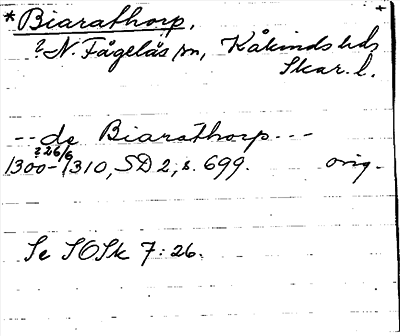 *Biarathorp. +
?N. Fågelås sn, Kåkinds hd,
Skar. l.
-- de Biarathorp ---
1300-?26/6 1310, SD 2, s. 699. orig.
Se SOSk 7:26.